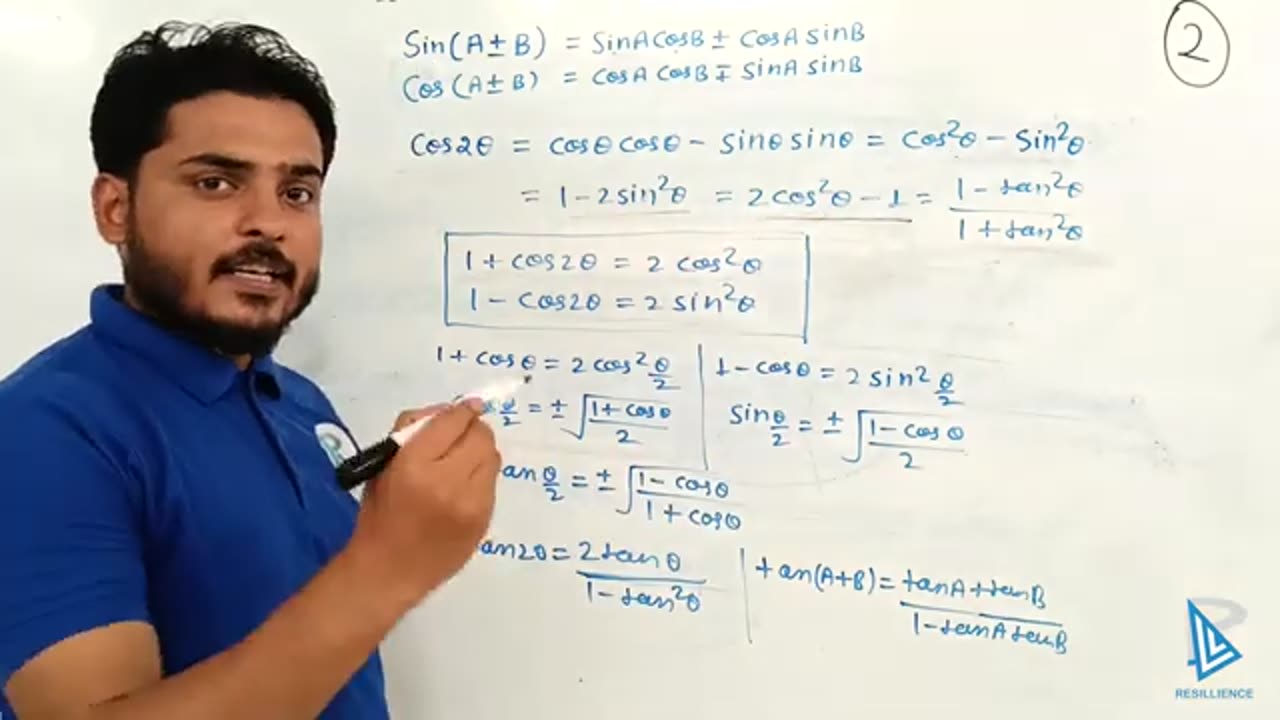 2
Sin(A±B) = SinACosB ± CosA SinB
Cos(A±B) = CosA CosB ∓ SinA SinB
Cos2θ = Cosθ Cosθ - Sinθ Sinθ = Cos²θ - Sin²θ
= 1 - 2 Sin²θ = 2 Cos²θ - 1 = (1 - tan²θ)/(1 + tan²θ)
1 + Cos2θ = 2 Cos²θ
1 - Cos2θ = 2 Sin²θ
1 + Cosθ = 2 Cos² θ/2
θ/2 = ± √((1 + Cosθ)/2)
1 - Cosθ = 2 Sin² θ/2
Sin θ/2 = ± √((1 - Cosθ)/2)
an θ/2 = ± √((1 - Cosθ)/(1 + Cosθ))
an2θ = (2tanθ)/(1 - tan²θ)
tan(A+B) = (tanA + tanB)/(1 - tanA tanB)
RESILLIENCE